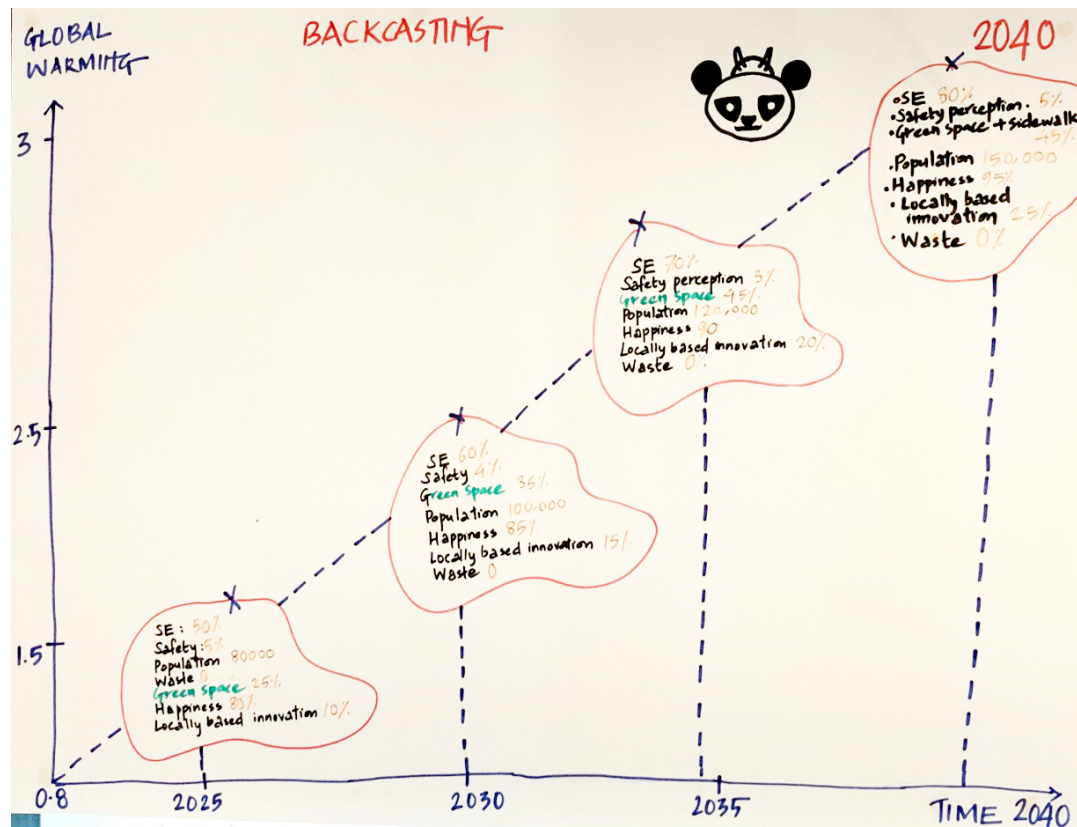 GLOBAL
WARMING
BACKCASTING
2040
• SE 80%
• Safety perception. 5%
• Green Space + Sidewalk
45%
• Population 150,000
• Happiness 95%
• Locally based
innovation 25%
• Waste 0%
3
SE 70%
Safety perception 3%
Green Space 45%
Population 120,000
Happiness 90
Locally based innovation 20%
Waste 0%
2.5
SE 60%
Safety 4%
Green Space 35%
Population 100,000
Happiness 85%
Locally based innovation 15%
Waste 0
1.5
SE : 50%
Safety : 5%
Population 80000
Waste 0
Green Space 25%
Happiness 80%
Locally based innovation 10%
0.8
2025
2030
2035
TIME 2040